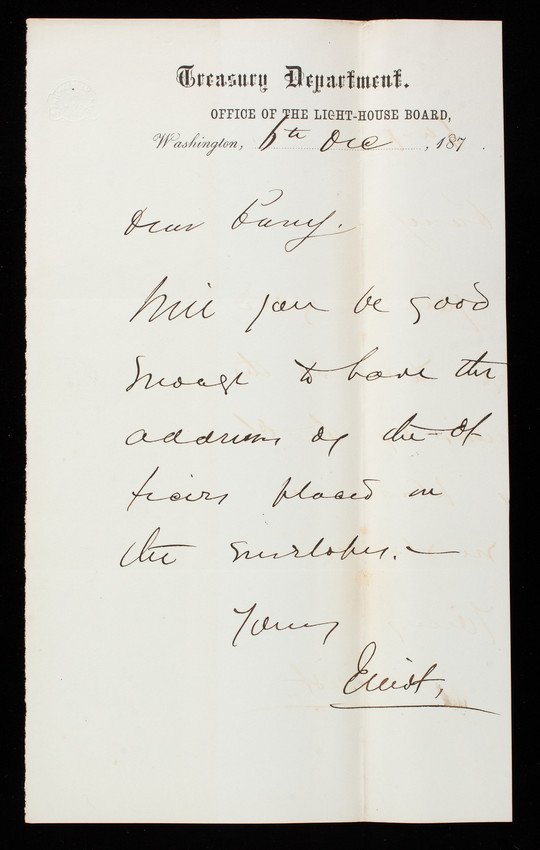 Treasury Department.
OFFICE OF THE LIGHT-HOUSE BOARD,
Washington, 6th Dec , 187 .
Dear Casey.
Will you be good
enough to have the
address of the of
ficers placed on
the envelopes. —
Yours
Elliot,